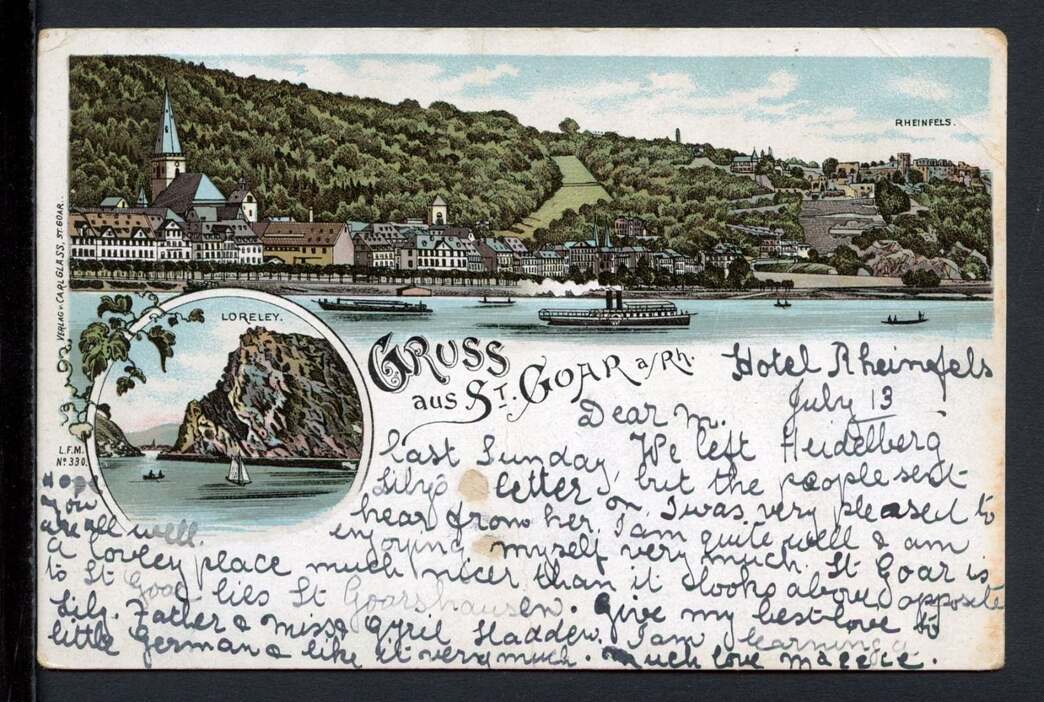 RHEINFELS.
VERLAG v. CARL GLASS, ST. GOAR.
LORELEY.
GRUSS
aus ST. GOAR a/Rh.
L.F.M.
No. 330.
Hotel Rheinfels
July 13
Dear M.
last Sunday, We left Heidelberg
Lily's letter, but the people sent
hear from her. on, I was very pleased to
enjoying myself very much. I am quite well & am
a loveley place much nicer than it looks above, St Goar is
to St Goar lies St Goarshausen. opposite
Lily. Father & Miss Cyril Sladden. Give my best love to
little German & like it very much. I am learning a
Much love
Hope
you
are all well.